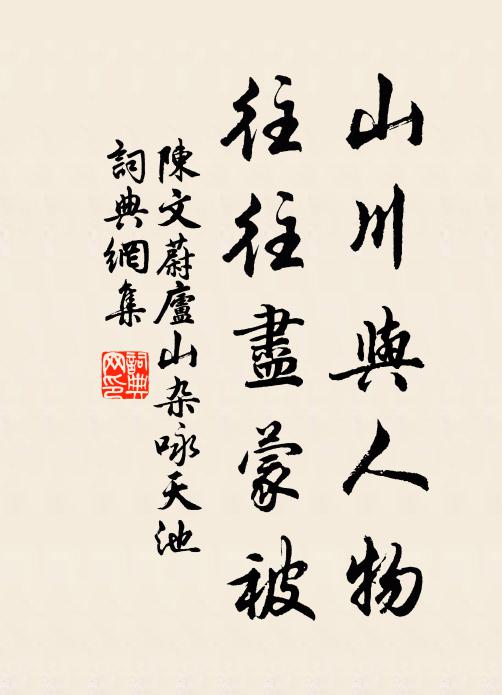 山川與人物
往往盡蒙被
陳文蔚廬山杂咏天池
詞典網集
詞典
网印